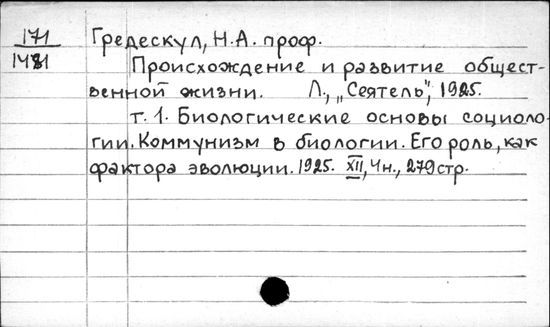 171 Гредескул, Н.А. проф.
1481 Происхождение и развитие общест-
венной жизни. Л., „Сеятель", 1925.
т. 1. Биологические основы социоло-
гии. Коммунизм в биологии. Его роль, как
фактора эволюции. 1925. XII, 4н., 279стр.